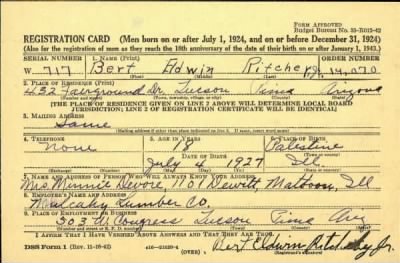 FORM APPROVED
Budget Bureau No. 33-R012-42
REGISTRATION CARD—(Men born on or after July 1, 1924, and on or before December 31, 1924)
(Also for the registration of men as they reach the 18th anniversary of the date of their birth on or after January 1, 1943.)
SERIAL NUMBER 1. NAME (Print) ORDER NUMBER
W 717 Bert Edwin Ritchey Jr. 14,070
(First) (Middle) (Last)
2. PLACE OF RESIDENCE (Print)
432 Fairground Dr. Tucson Pima Arizona
(Number and street) (Town, township, village, or city) (County) (State)
[THE PLACE OF RESIDENCE GIVEN ON LINE 2 ABOVE WILL DETERMINE LOCAL BOARD
JURISDICTION; LINE 2 OF REGISTRATION CERTIFICATE WILL BE IDENTICAL]
3. MAILING ADDRESS
Same
(Mailing address if other than place indicated on line 2. If same, insert word same)
4. TELEPHONE 5. AGE IN YEARS 6. PLACE OF BIRTH
None 18 Palestine
DATE OF BIRTH
July 4 1927 Ill.
(Exchange) (Number) (Mo.) (Day) (Yr.) (State or country)
7. NAME AND ADDRESS OF PERSON WHO WILL ALWAYS KNOW YOUR ADDRESS
Mrs Minnie Devore, 1101 Dewitt, Mattoon, Ill
8. EMPLOYER'S NAME AND ADDRESS
Mulcahy Lumber Co.
9. PLACE OF EMPLOYMENT OR BUSINESS
303 W. Congress Tucson Pima Ariz
(Number and street or R. F. D. number) (Town) (County) (State)
I AFFIRM THAT I HAVE VERIFIED ABOVE ANSWERS AND THAT THEY ARE TRUE.
DSS Form 1 (Rev. 11-16-42) (OVER) Bert Edwin Ritchey Jr.
(Registrant's signature)